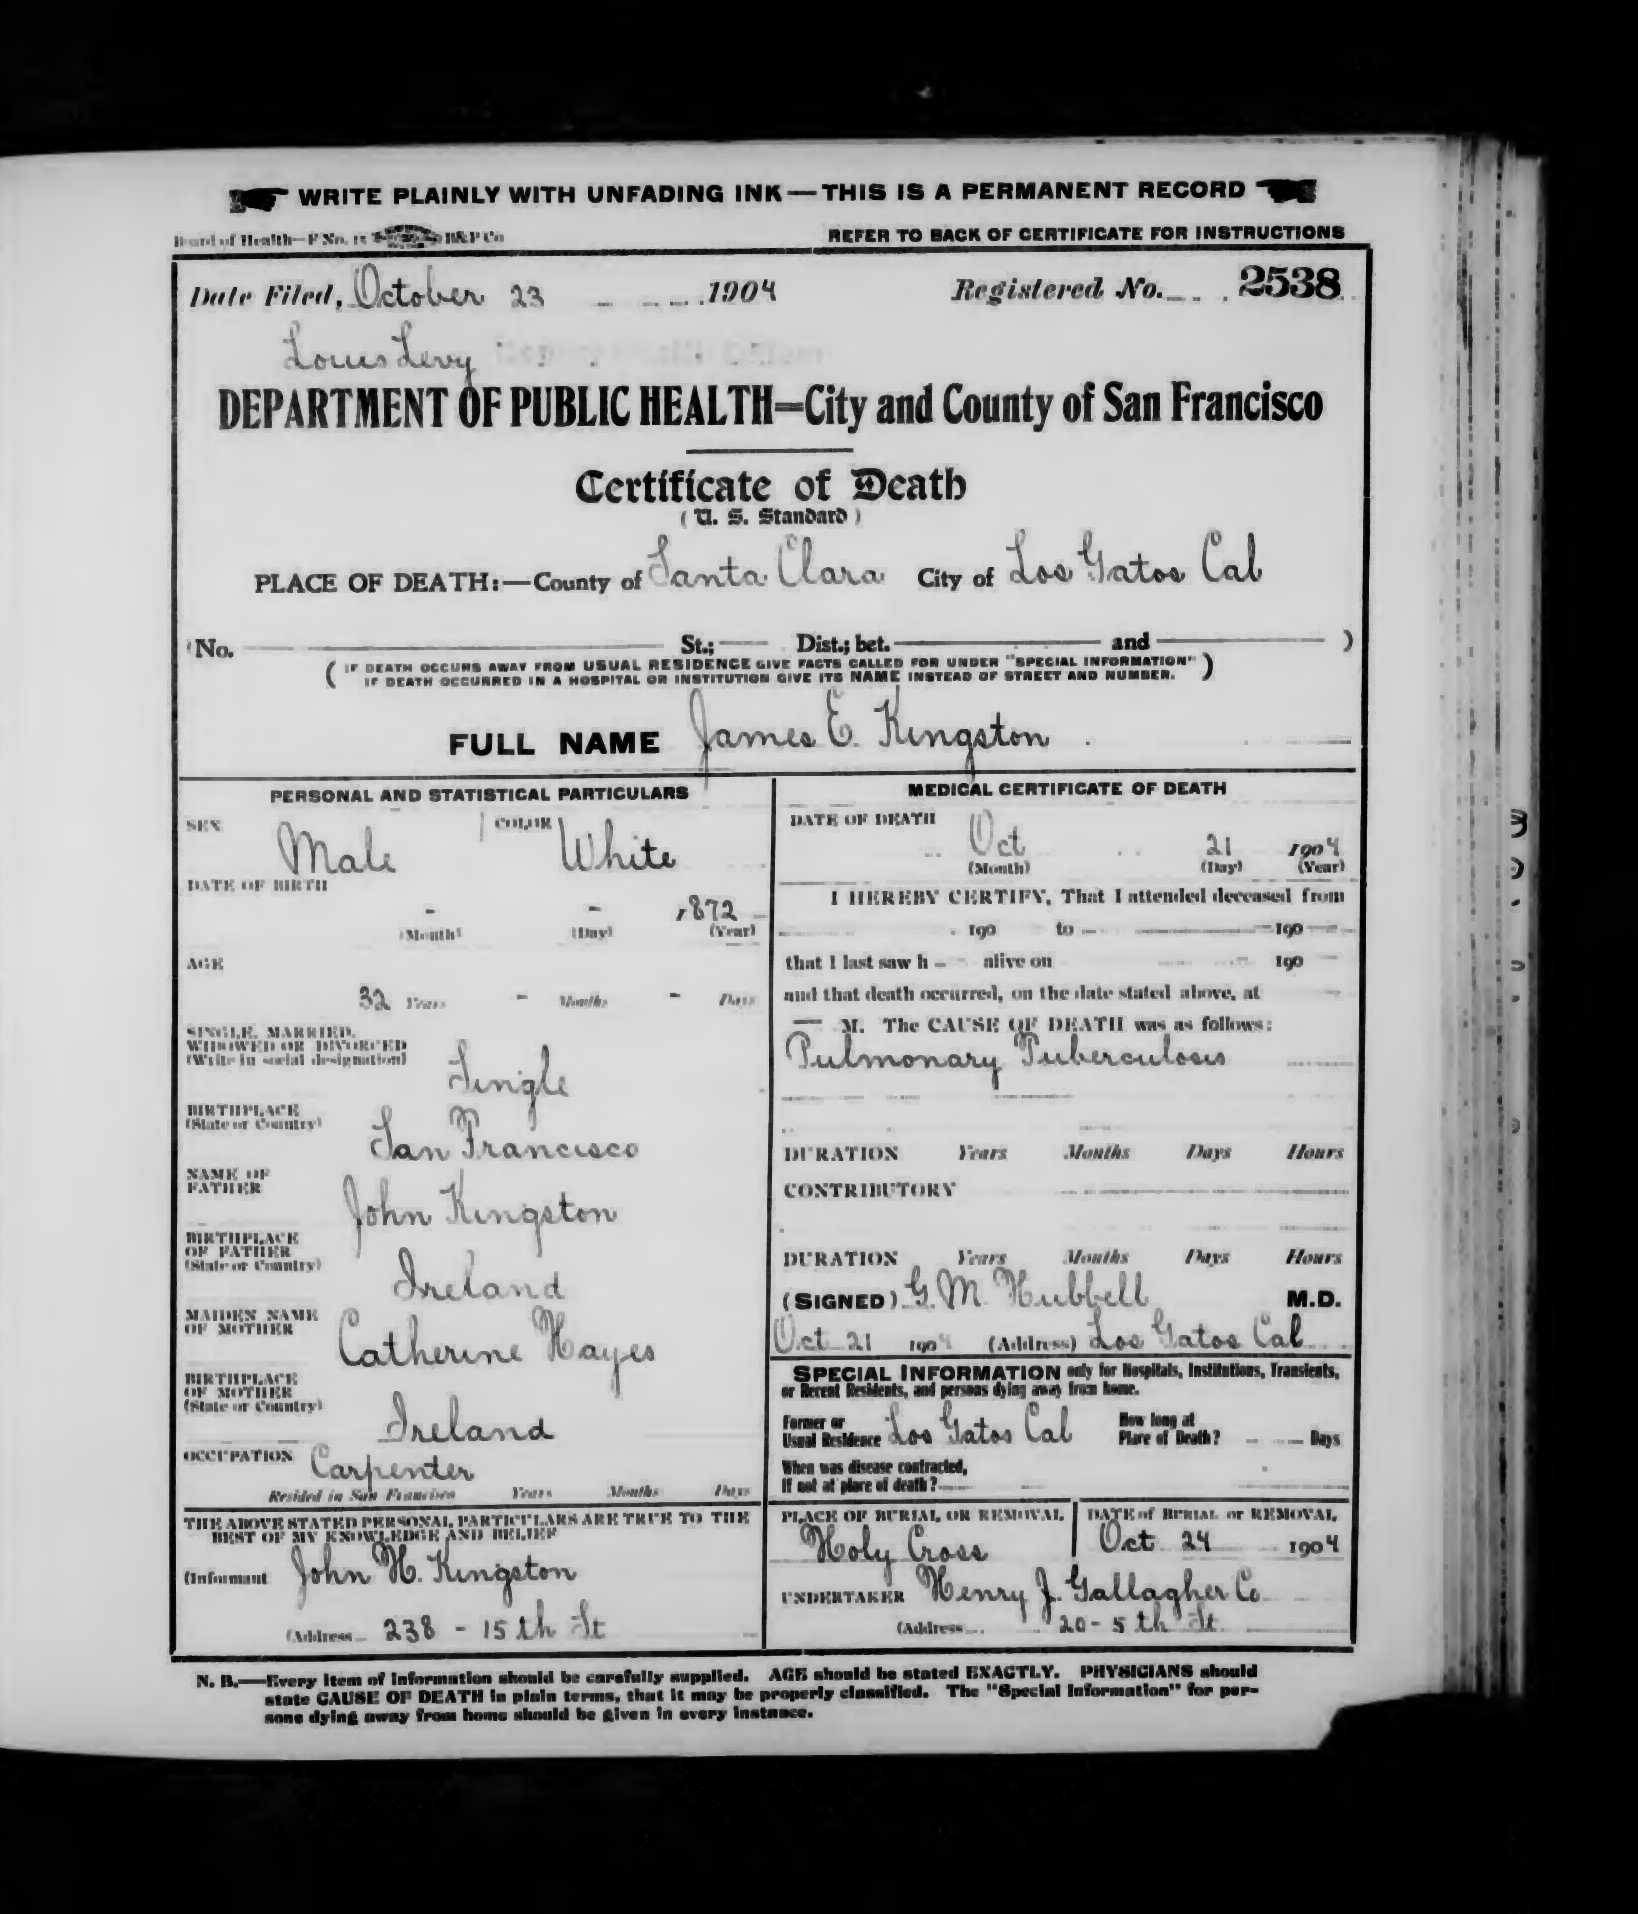 WRITE PLAINLY WITH UNFADING INK—THIS IS A PERMANENT RECORD
Board of Health—F No. 15 B&P Co
REFER TO BACK OF CERTIFICATE FOR INSTRUCTIONS
Date Filed, October 23 1904 Registered No. 2538
Louis Levy
DEPARTMENT OF PUBLIC HEALTH=City and County of San Francisco
Certificate of Death
(U. S. Standard)
PLACE OF DEATH:—County of Santa Clara City of Los Gatos Cal
(No. St.; Dist.; bet. and )
(IF DEATH OCCURS AWAY FROM USUAL RESIDENCE GIVE FACTS CALLED FOR UNDER "SPECIAL INFORMATION"
IF DEATH OCCURRED IN A HOSPITAL OR INSTITUTION GIVE ITS NAME INSTEAD OF STREET AND NUMBER.)
FULL NAME James E. Kingston
PERSONAL AND STATISTICAL PARTICULARS
SEX Male COLOR White
DATE OF BIRTH
- - 1872
(Month) (Day) (Year)
AGE
32 Years - Months - Days
SINGLE, MARRIED,
WIDOWED OR DIVORCED
(Write in social designation) Single
BIRTHPLACE
(State or Country) San Francisco
NAME OF
FATHER John Kingston
BIRTHPLACE
OF FATHER
(State or Country) Ireland
MAIDEN NAME
OF MOTHER Catherine Hayes
BIRTHPLACE
OF MOTHER
(State or Country) Ireland
OCCUPATION Carpenter
Resided in San Francisco Years Months Days
THE ABOVE STATED PERSONAL PARTICULARS ARE TRUE TO THE
BEST OF MY KNOWLEDGE AND BELIEF
(Informant John H. Kingston
(Address 238 - 15th St
MEDICAL CERTIFICATE OF DEATH
DATE OF DEATH
Oct 21 1904
(Month) (Day) (Year)
I HEREBY CERTIFY, That I attended deceased from
190 to 190
that I last saw h alive on 190
and that death occurred, on the date stated above, at
M. The CAUSE OF DEATH was as follows:
Pulmonary Tuberculosis
DURATION Years Months Days Hours
CONTRIBUTORY
DURATION Years Months Days Hours
(SIGNED) G. M. Hubbell M.D.
Oct 21 1904 (Address) Los Gatos Cal
SPECIAL INFORMATION only for Hospitals, Institutions, Transients,
or Recent Residents, and persons dying away from home.
Former or
Usual Residence Los Gatos Cal
How long at
Place of Death? Days
When was disease contracted,
If not at place of death?
PLACE OF BURIAL OR REMOVAL
Holy Cross
DATE of BURIAL or REMOVAL
Oct 24 1904
UNDERTAKER Henry J. Gallagher Co
(Address 20 - 5th St
N. B.—Every item of information should be carefully supplied. AGE should be stated EXACTLY. PHYSICIANS should
state CAUSE OF DEATH in plain terms, that it may be properly classified. The "Special Information" for per-
sons dying away from home should be given in every instance.